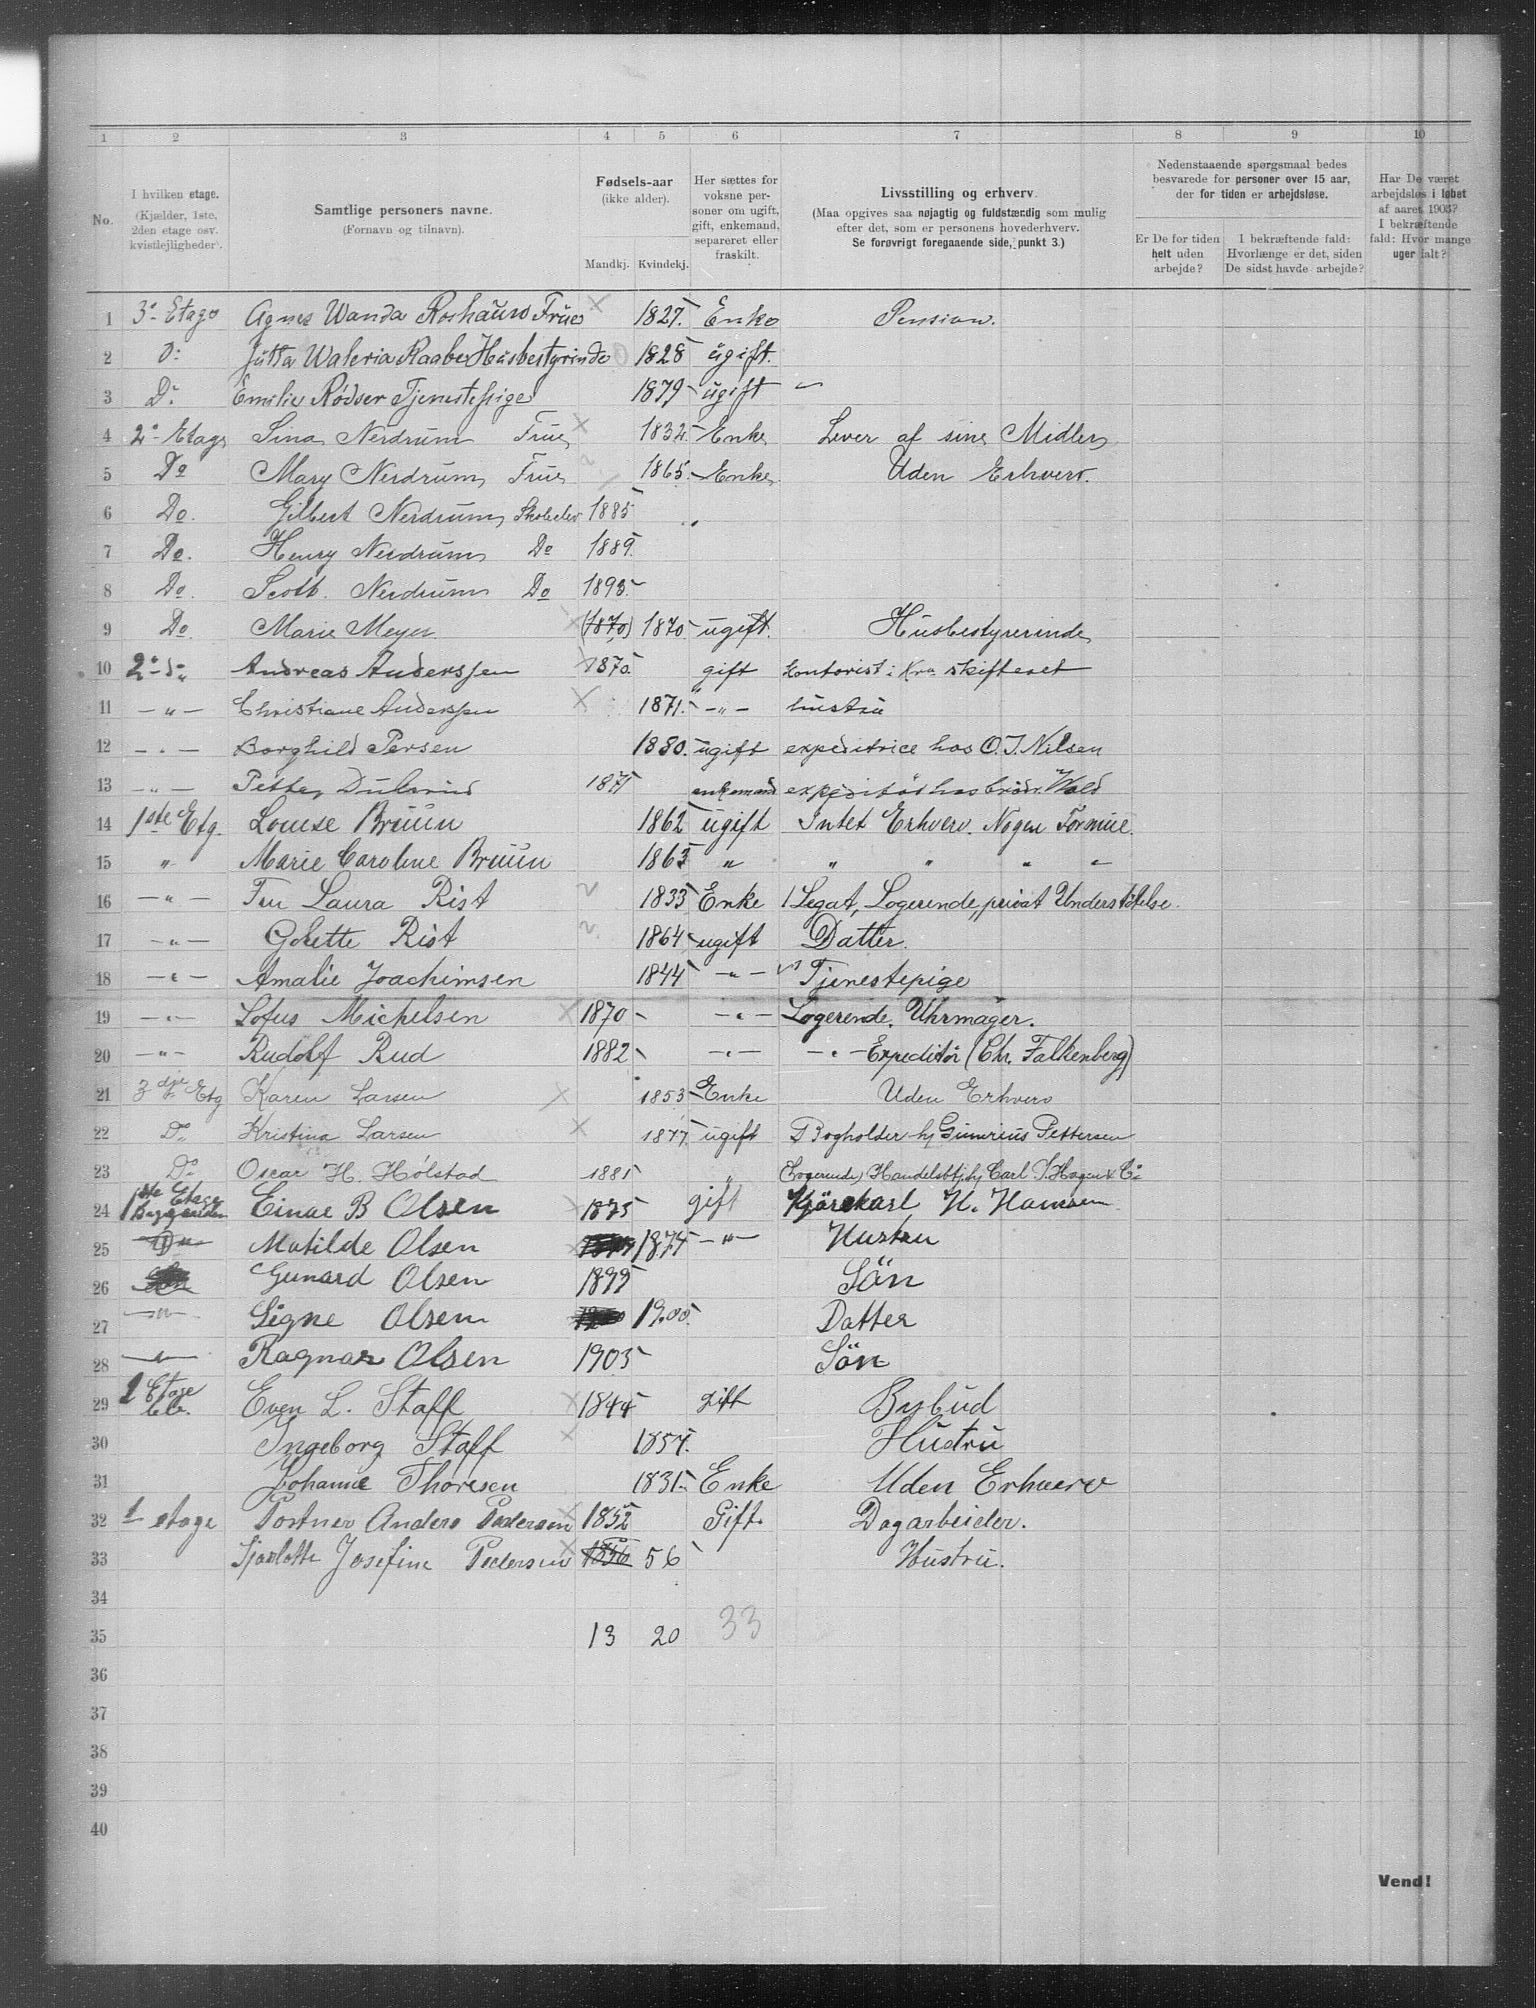 1 2 3 4 5 6 7 8 9 10
No.
I hvilken etage.
(Kjælder, 1ste,
2den etage osv.
kvistlejligheder).
Samtlige personers navne.
(Fornavn og tilnavn).
Fødsels-aar
(ikke alder).
Mandkj. Kvindekj.
Her sættes for
voksne per-
soner om ugift,
gift, enkemand,
separeret eller
fraskilt.
Livsstilling og erhverv.
(Maa opgives saa nøjagtig og fuldstændig som mulig
efter det, som er personens hovederhverv.
Se forøvrigt foregaaende side, punkt 3.)
Nedenstaaende spørgsmaal bedes
besvarede for personer over 15 aar,
der for tiden er arbejdsløse.
Er De for tiden
helt uden
arbejde?
I bekræftende fald:
Hvorlænge er det, siden
De sidst havde arbejde?
Har De været
arbejdsløs i løbet
af aaret 1903?
I bekræftende
fald: Hvor mange
uger ialt?
1 3. Etage Agnes Wanda Roshauw Frue 1827. Enke Pension.
2 D. Jutta Waleria Raabe Husbestyrinde 1828 ugift.
3 Do. Emilie Rødser Tjenestepige 1879 ugift "
4 2. Etage Sina Nerdrum Frue 1832. Enke Lever af sine Midler
5 Do Mary Nerdrum Frue 1865. Enke Uden Erhverv.
6 Do. Gilbert Nerdrum Skoleelev 1885
7 Do. Henry Nerdrum Do 1889.
8 Do. Scott. Nerdrum Do 1893
9 Do Marie Meyer (1870) 1870 ugift. Husbestyrerinde
10 2. do. Andreas Anderssen 1870. gift kontorist i Kra. skifteret
11 — " — Christiane Anderssen 1871. — " — hustru
12 — " — Borghild Persen 1880. ugift expeditrice hos O. J. Nilsen
13 — " — Petter 1871 enkemand expeditør hos brødr. Wold
14 1ste Etg. Louise Bruun 1862 ugift Intet Erhverv. Nogen Formue.
15 " Marie Caroline Bruun 1863 " " " " "
16 — " — Fru Laura Rist 1833 Enke 1 Legat, Logerende, privat Understøttelse.
17 — " — Golette Rist 1864 ugift Datter.
18 — " — Amalie Joachimsen 1844 — " — Tjenestepige
19 — " — Lofus Michelsen 1870 — " — Logerende. Uhrmager.
20 — " — Rudolf Rud 1882 — " — — " — Expeditør (Chr. Falkenberg)
21 3dje Etg Karen Larsen 1853 Enke Uden Erhverv
22 Do. Kristina Larsen 1877. ugift Bogholder hj Gunerius Pettersen
23 Do Oscar H. Holstad 1881 " (Logerende) Handelsbtj. hj Carl S. Hagen & Co
24 1ste Etage Baggaarden Einar B Olsen 1875 gift Kjørekarl H. Hansen
25 Do Matilde Olsen 1874 — " — Hustru
26 Gunard Olsen 1899 Søn
27 — " — Signe Olsen 1900. Datter
28 — " — Ragnar Olsen 1903 Søn
29 1 Etage Even L. Staff 1844 Gift Bybud
30 Ingeborg Staff 1857. Hustru
31 Johanne Thoresen 1831. Enke Uden Erhverv
32 1 etage Portner Anders Pedersen 1852 Gift. Dagarbeider.
33 Sjarlotte Josefine Pedersen 1856 56 Hustru.
34
35 13 20 33
36
37
38
39
40
Vend!